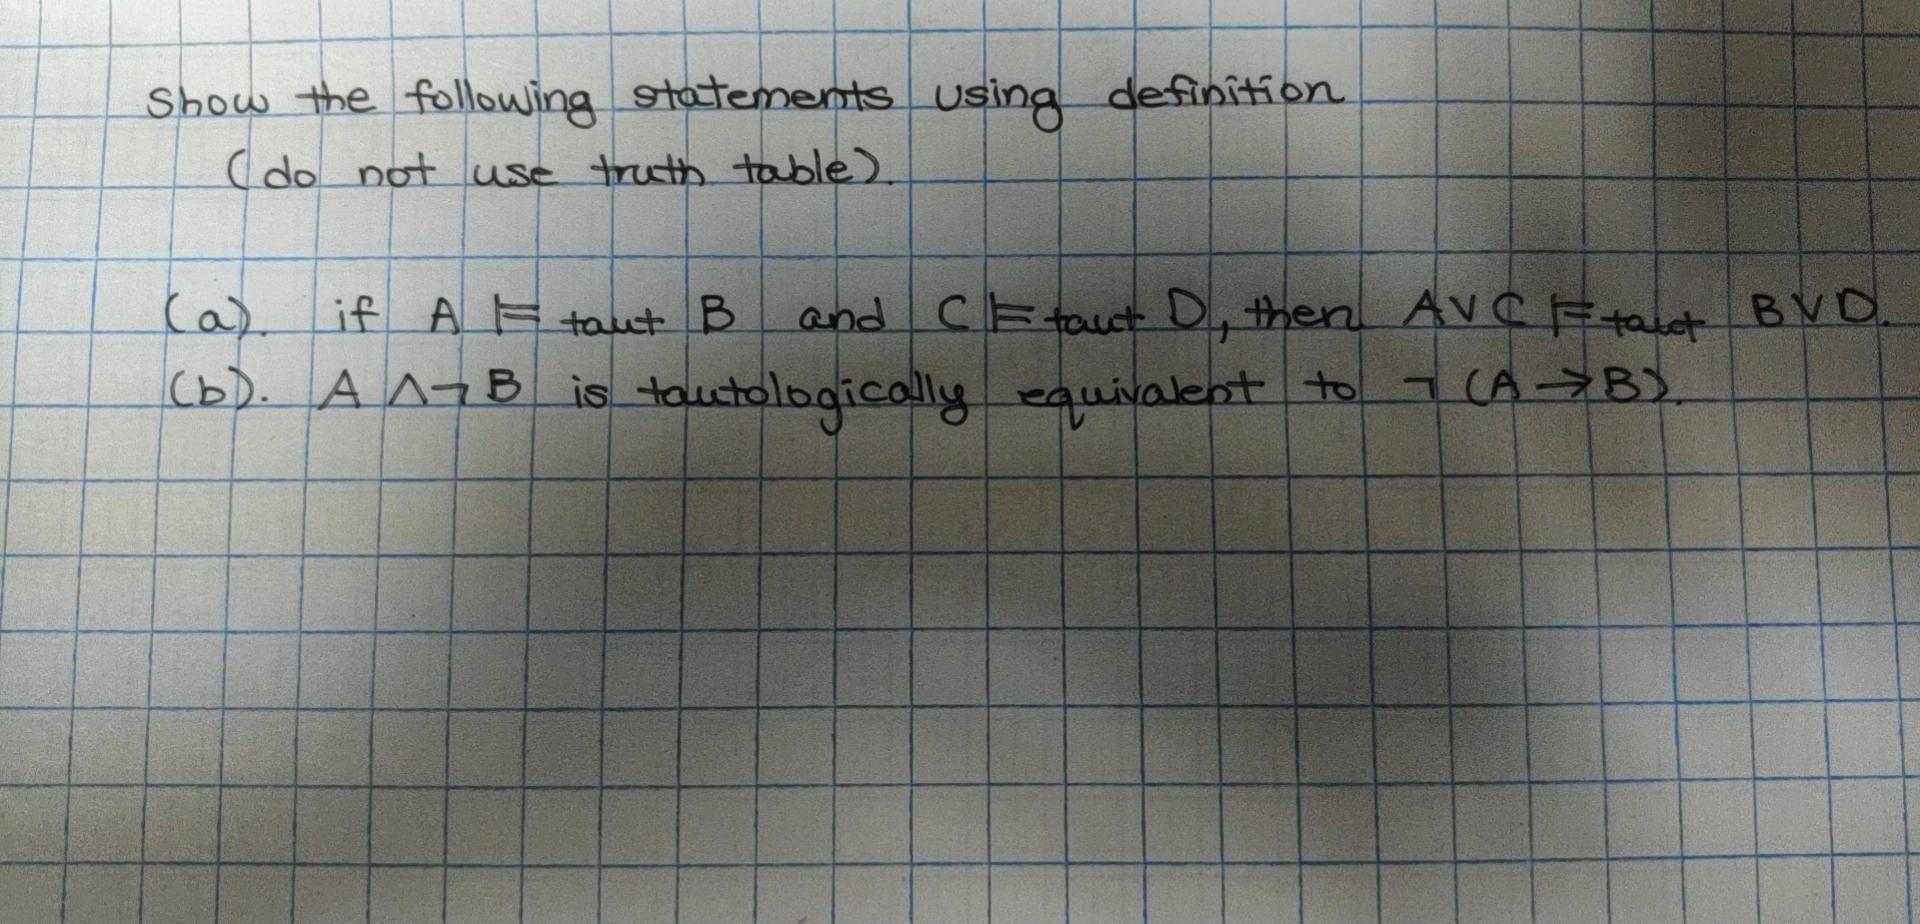 show the following statements using definition
(do not use truth table).
(a). if A ⊨ taut B and C ⊨ taut D, then A∨C ⊨ taut B∨D.
(b). A ∧¬B is tautologically equivalent to ¬(A→B).